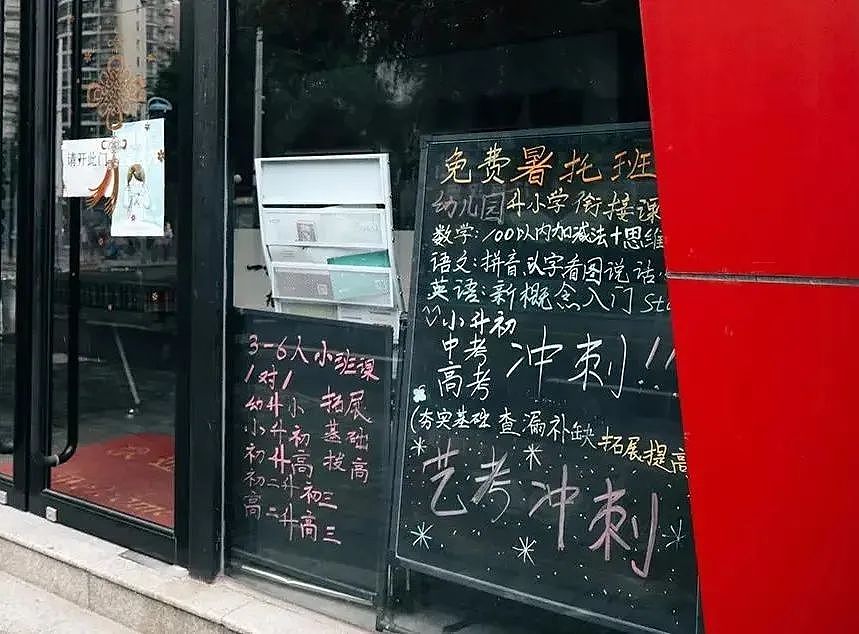 请开此门
免费暑托班
幼儿园升小学衔接课
数学:100以内加减法+思维
语文:拼音 认字看图说话
英语:新概念入门 Sta
小升初
中考
高考
冲刺!!
(夯实基础 查漏补缺 拓展提高
艺考冲刺
3-6人小班课
1对1
幼升小
小升初
初升高
初二升初三
高二升高三
拓展
基础
拔高